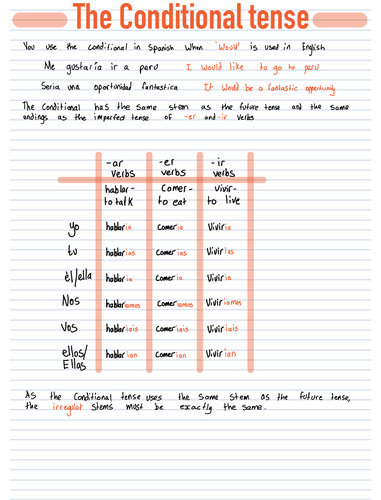 The Conditional tense
You use the conditional in Spanish when 'would' is used in English
Me gustaría ir a peru I would like to go to peru
Seria una oportunidad fantastica It would be a fantastic opportunity
The Conditional has the same stem as the future tense and the same
endings as the imperfect tense of -er and -ir verbs
-ar verbs -er verbs -ir verbs
hablar- to talk Comer- to eat vivir- to live
yo hablaria comeria Viviria
tu hablarias comerias Vivirias
èl/ella hablaria comeria Viviria
Nos hablariamos comeriamos Viviriamos
Vos hablariais comeriais Viviriais
ellos/Ellas hablarian comerian Vivirian
As the Conditional tense uses the same stem as the future tense,
the irregular stems must be exactly the same.